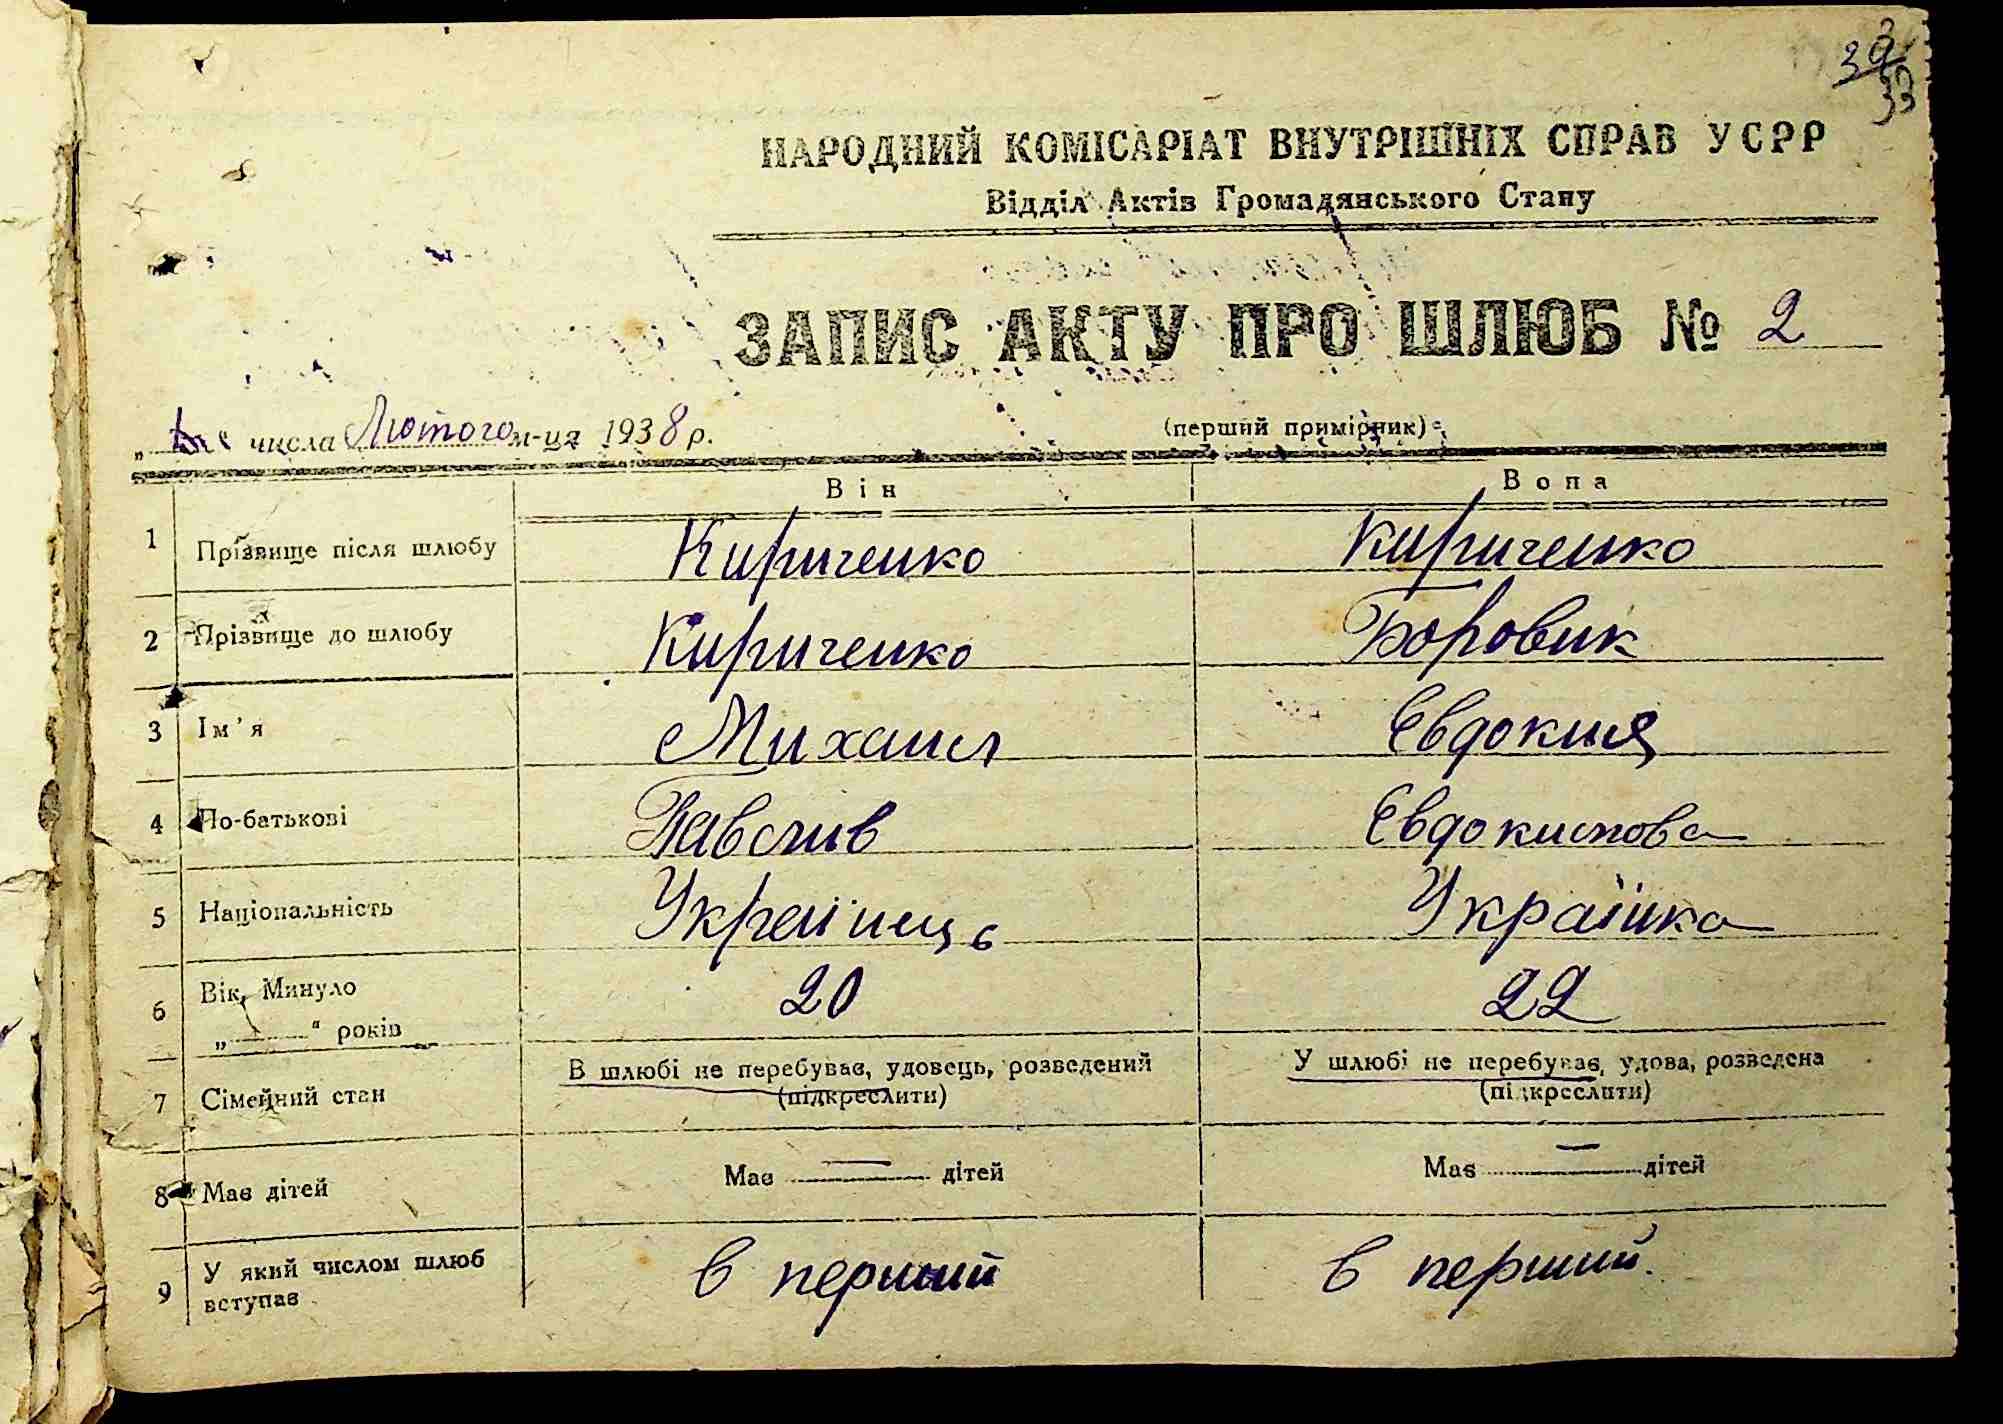 39
33
НАРОДНИЙ КОМІСАРІАТ ВНУТРІШНІХ СПРАВ УСРР
Відділ Актів Громадянського Стану
ЗАПИС АКТУ ПРО ШЛЮБ № 2
числа Лютого м-ця 1938 р.
(перший примірник)
Він Вона
1 Прізвище після шлюбу Кириченко Кириченко
2 Прізвище до шлюбу Кириченко Боровик
3 Ім'я Михаил Евдокия
4 По-батькові Павлив Евдокимова
5 Національність Українець Українка
6 Вік. Минуло 20 22
„ “ років
7 Сімейний стан В шлюбі не перебував, удовець, розведений У шлюбі не перебував, удова, розведена
(підкреслити) (підкреслити)
8 Має дітей Має — дітей Має — дітей
9 У який числом шлюб вступав в перший в перший.